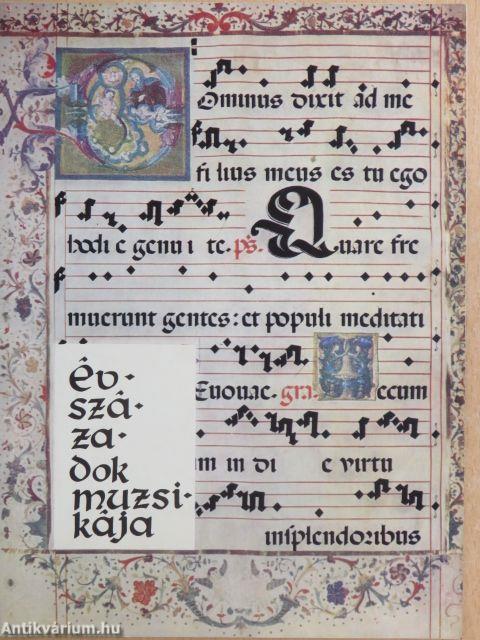 Dominus dixit ad me
fi lius meus es tu ego
hodi e genu i te. ps. Quare fre
muerunt gentes: et populi meditati
Euouae. gra. Tecum
m in di e virtu
insplendoribus
év-
szá-
za-
dok
muzsi-
kája
Antikvárium.hu